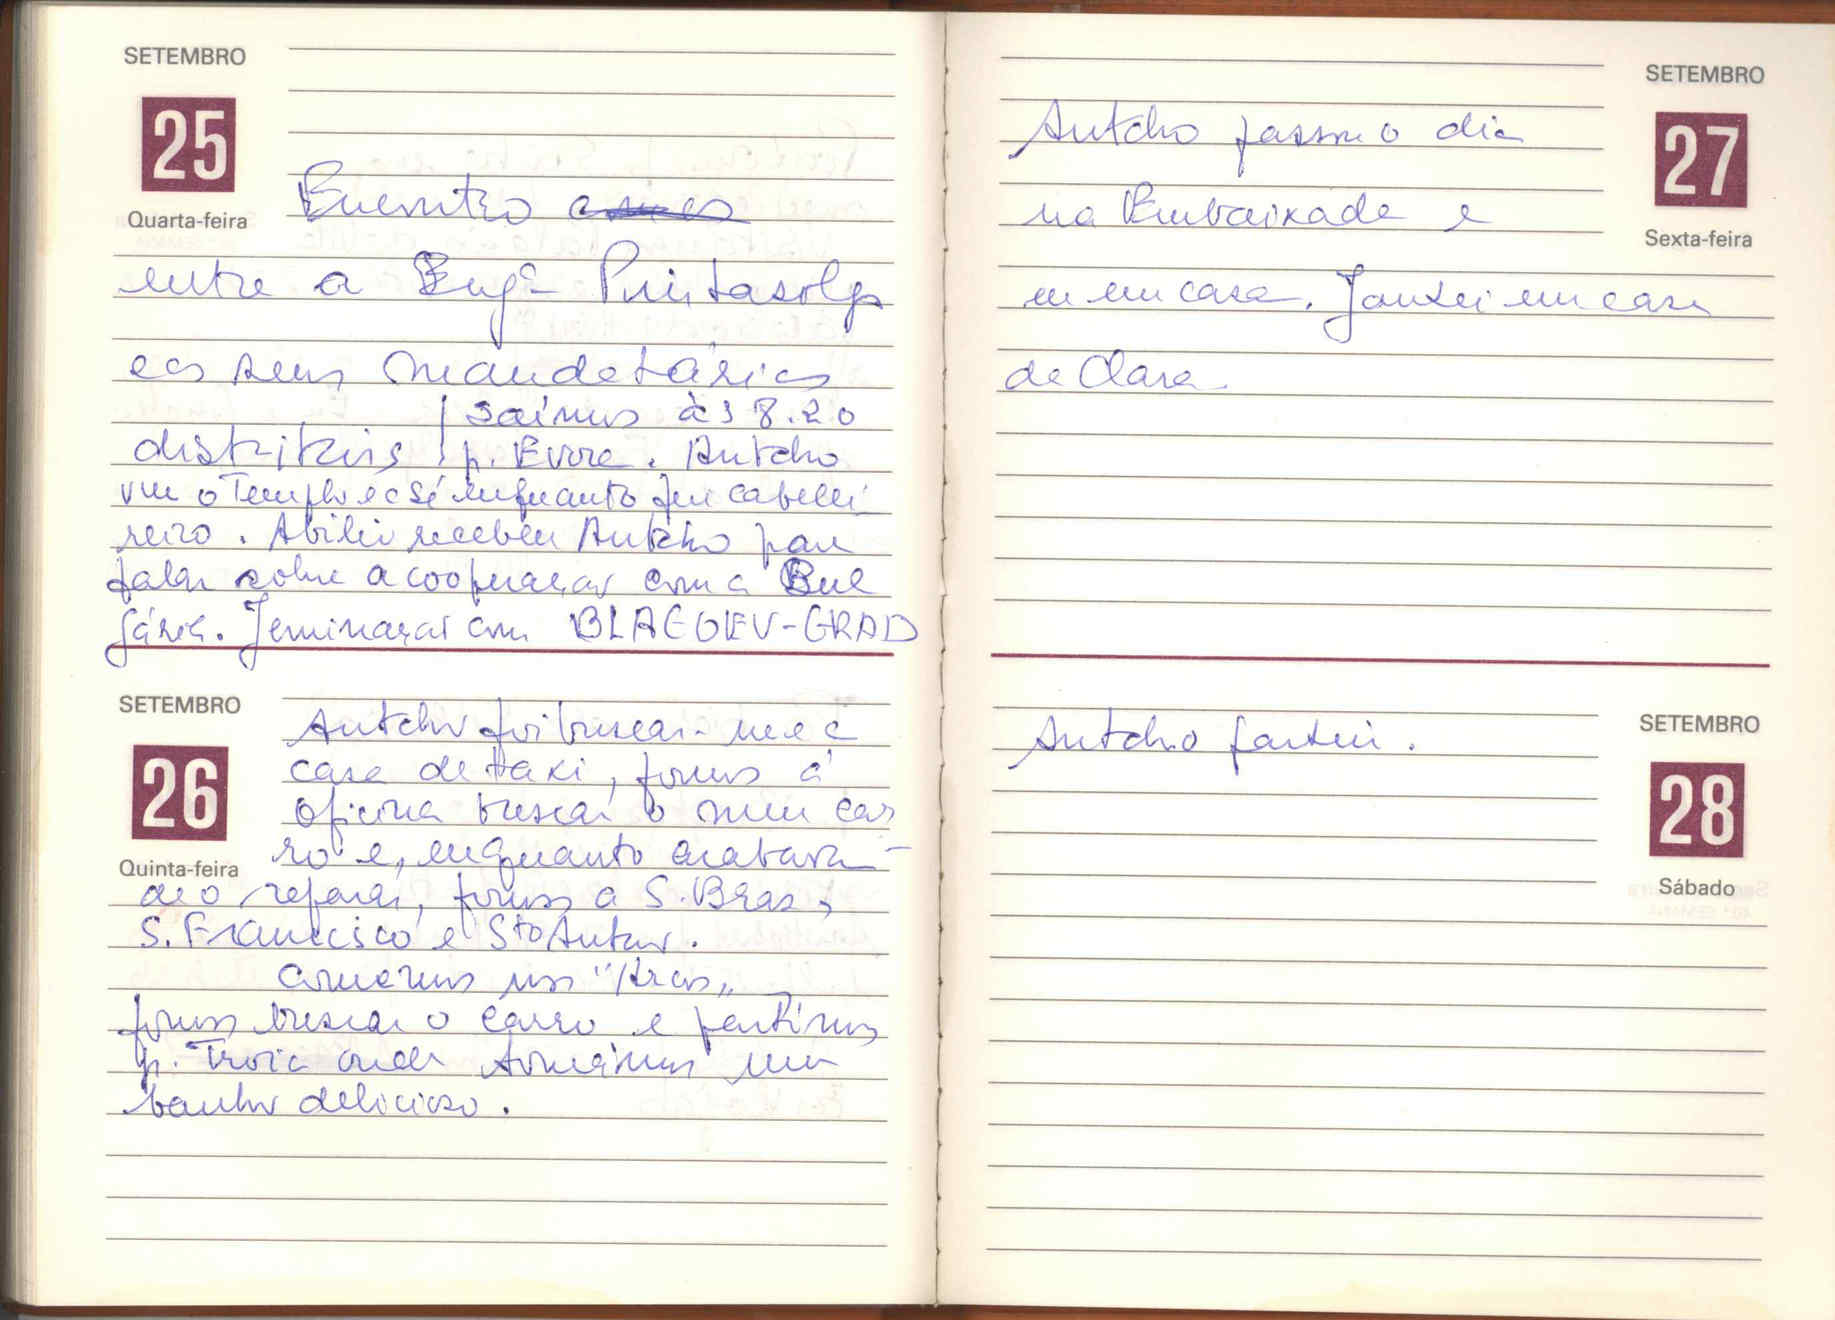 SETEMBRO
25
Quarta-feira
Encontro
entre a Engª Pintasilgo
e os seus mandatários
distritais | saímos às 8.20
p. Evora. Antcho
viu o Templo e a Sé enquanto fui cabelei
reiro. Abílio recebeu Antcho para
falar sobre a cooperaçao com a Bul
gária. Geminaçao com BLAGOEV-GRAD
SETEMBRO
26
Quinta-feira
Antcho foi buscar-me a
casa de taxi, fomos à
oficina buscar o meu car
ro e, enquanto acabava-
de o reparar, fomos a S. Braz,
S. Francisco e Sto Antao.
Comemos nos "Arcos„
fomos buscar o carro e partimos
p. Troia onde tomámos um
banho delicioso.
SETEMBRO
27
Sexta-feira
Antcho passou o dia
na Embaixada e
eu em casa. Jantei em casa
da Clara.
SETEMBRO
28
Sábado
Antcho partiu.